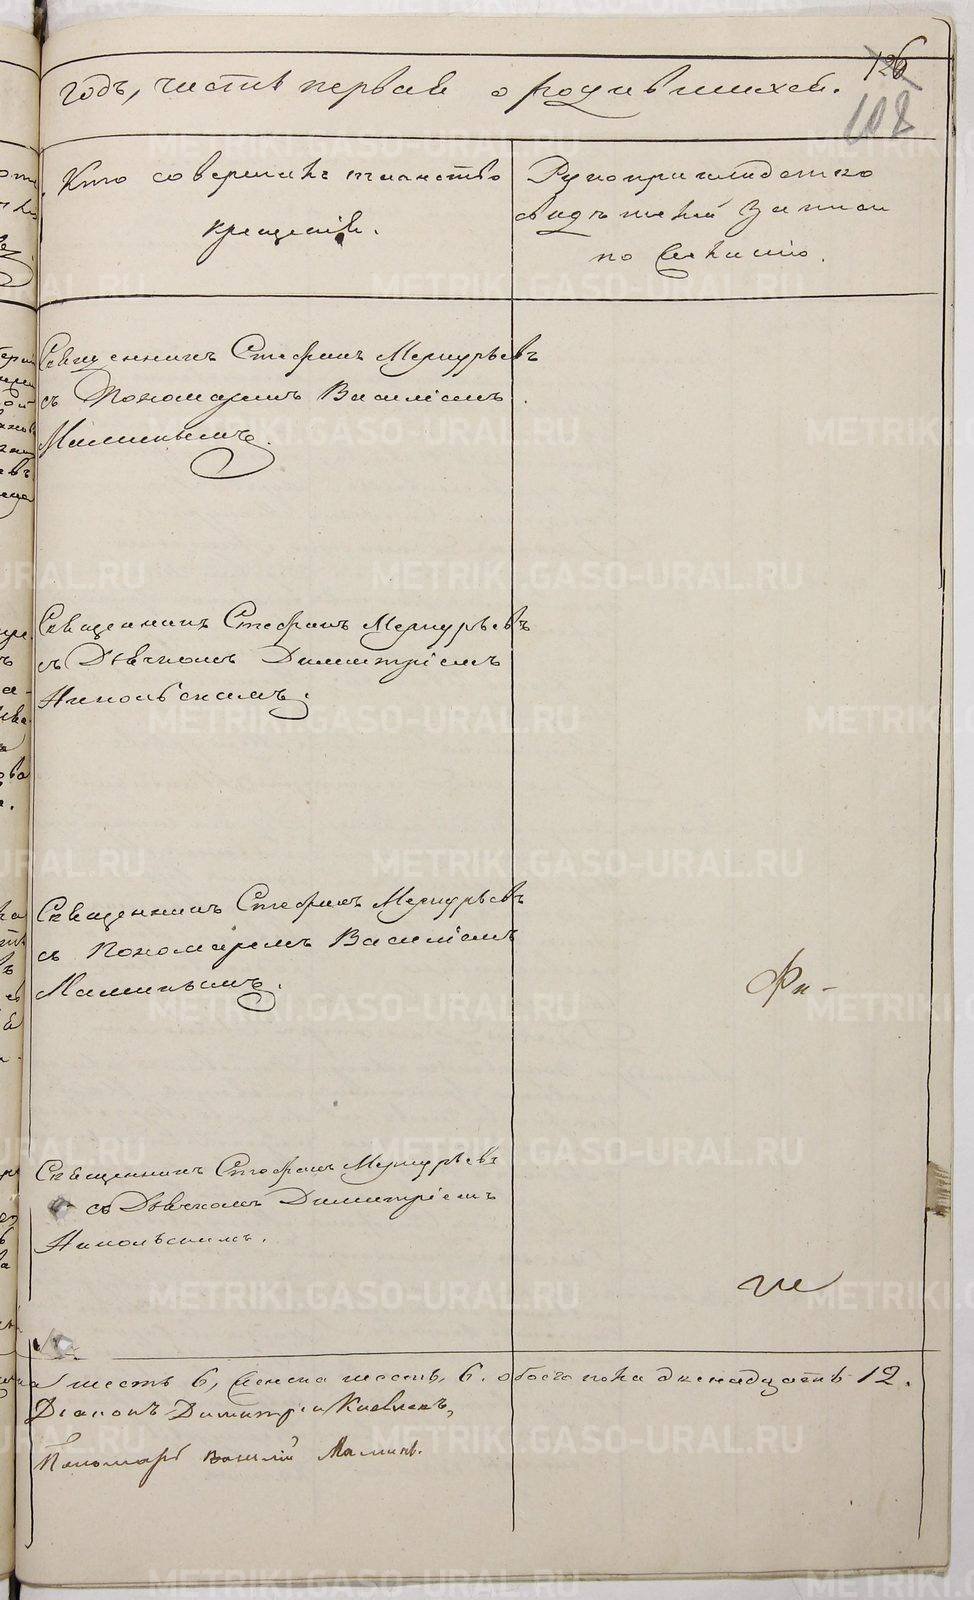 годъ, часть первая о родившихся.
126
108
Кто совершалъ таинство
крещенія.
Рукоприкладство
свидѣтелей записи
по желанію.
Священникъ Стефанъ Меркурьевъ
съ Пономаремъ Василіемъ
Малиньимъ.
Священникъ Стефанъ Меркурьевъ
съ Дьячкомъ Димитріемъ
Никольскимъ.
Священникъ Стефанъ Меркурьевъ
съ Пономаремъ Василіемъ
Малиньимъ.
Священникъ Стефанъ Меркурьевъ
съ Дьячкомъ Димитріемъ
Никольскимъ.
шесть 6, женска шесть, 6. обоего пола двенадцать 12.
Діаконъ Димитрій
Пономарь Василій Малинъ.
METRIKI.GASO-URAL.RU